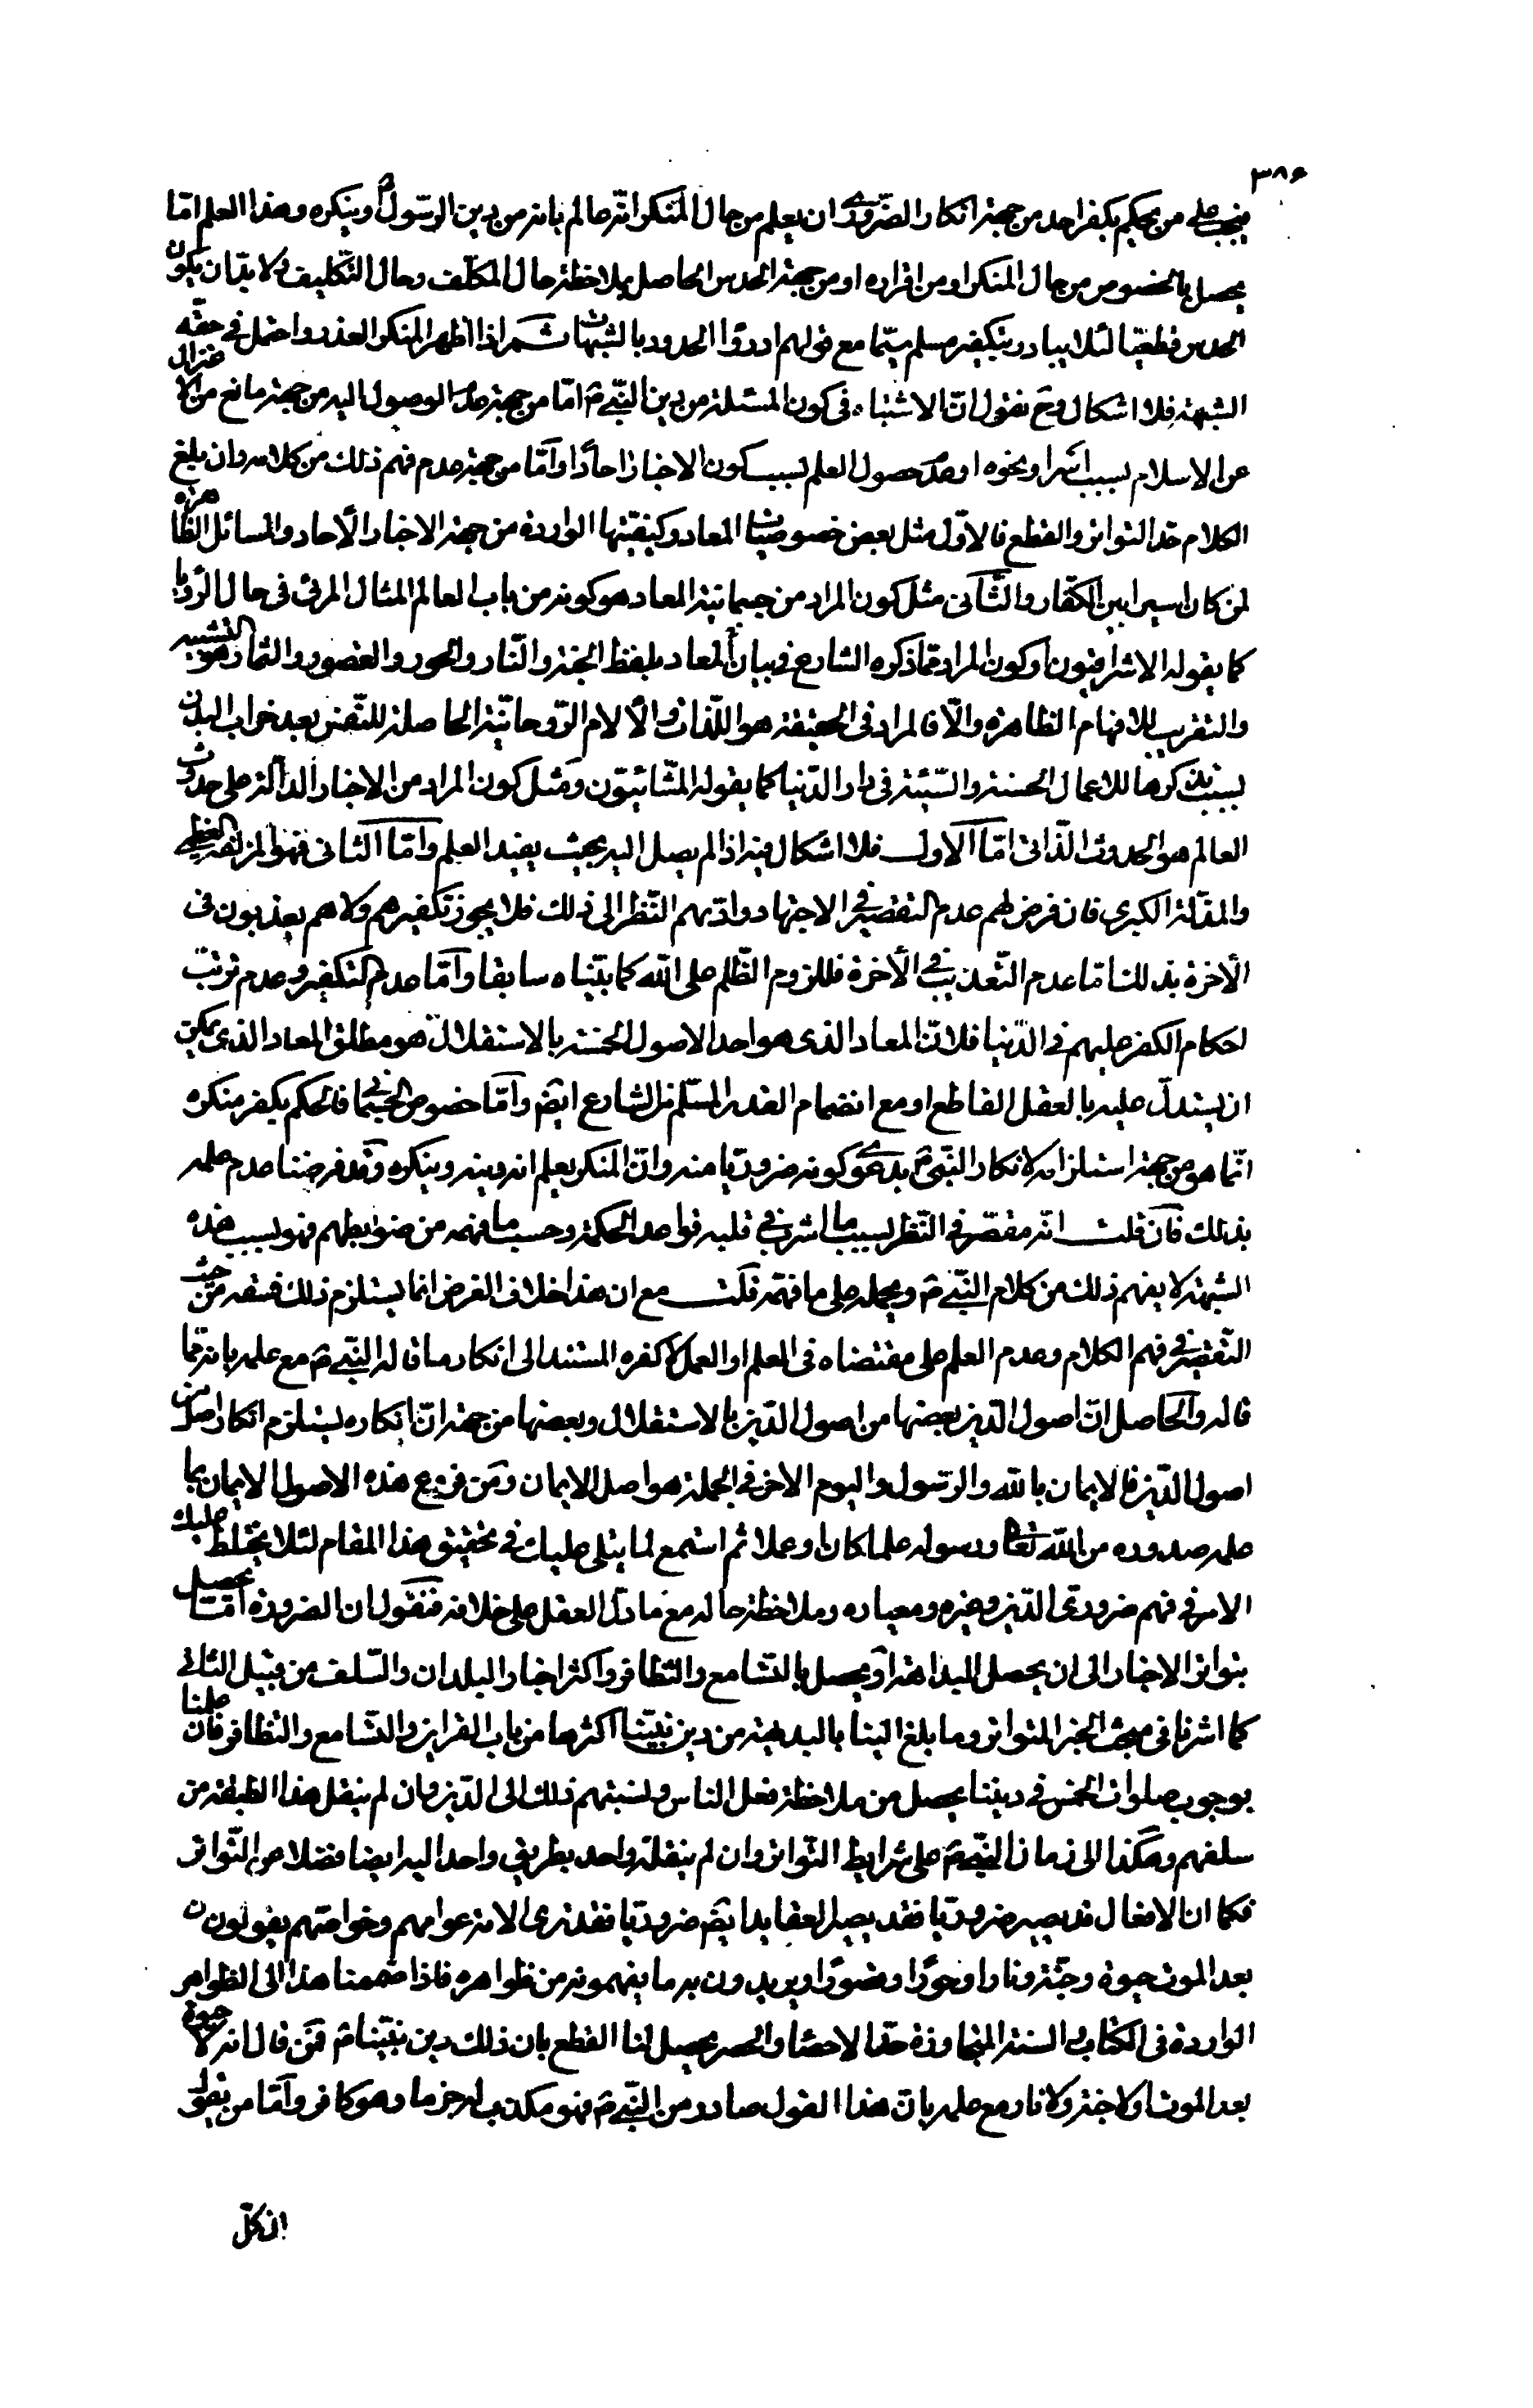 ٣٨۶
فيجب على من يحكم بكفر احد من جهة انكار الضّرورى ان يعلم من حال المنكر انّه عالم بانه من دين الرّسول ص وينكره وهذا العلم امّا
يحصل بالخصوص من حال المنكر او من اقراره او من جهة الحدس الحاصل بملاحظة حال المكلّف وحال التّكليف ولا بدّ ان يكون
الحدس قطعيّا لئلا يبادر بتكفير مسلم سيّما مع قولهم ادرؤا الحدود بالشبهات ثم اذا اظهر المنكر العذر واحتمل فى حقّه
الشبهة فلا اشكال وح نقول انّ الاشتباه فى كون المسئلة من دين النّبىّ ص امّا من جهة عدم الوصول اليه من جهة مانع من الانعزال
عن الاسلام بسبب اسر او نحوه او عدم حصول العلم بسبب كون الاخبار احادًا وامّا من جهة عدم فهم ذلك من كلامه وان بلغ
الكلام حدّ التواتر والقطع فالاوّل مثل بعض خصوصيّات المعاد وكيفيّتها الواردة من جهة الاخبار الأحاد والمسائل الظاهرة
لمن كان اسيرا بين الكفّار والثّانى مثل كون المراد من جسمانيّة المعاد هو كونه من باب العالم المثال المرئى فى حال الرّؤيا
كما يقوله الاشراقيّون او كون المراد ممّا ذكره الشارع فى بيان المعاد بلفظ الجنة والنّار والحور والقصور والثمار هو التشبيه
والتقريب للافهام الظاهرة والّا فالمراد فى الحقيقة هو اللّذات والألام الرّوحانيّة الحاصلة للنّفس بعد خراب البدن
بسبب تذكرها للاعمال الحسنة والسّيّئة فى دار الدّنيا كما يقوله المشّائيّون ومثل كون المراد من الاخبار الدالّة على حدوث
العالم هو الحدوث الذّاتى امّا الاول فلا اشكال فيه اذا لم يصل اليه بحيث يفيد العلم وامّا الثانى فهو المزلقة العظمى
والمذلّة الكبرى فان فرض لهم عدم التقصير فى الاجتهاد وادّيهم النّظر الى ذلك فلا يجوز تكفيرهم ولا هم يعذبون فى
الأخرة بذلك امّا عدم التّعذيب فى الأخرة فللزوم الظّلم على اللّه كما بيّنّاه سابقا وامّا عدم التكفير وعدم ترتب
احكام الكفر عليهم فى الدّنيا فلانّ المعاد الذى هو احد الاصول الخمسة بالاستقلال هو مطلق المعاد الذى يمكن
ان يستدلّ عليه بالعقل القاطع او مع انضمام القدر المسلّم من الشارع ايضَ وامّا خصوص الجسمانى فالحكم بكفر منكره
انّما هو من جهة استلزامه لانكار النّبىّ ص بدعوى كونه ضروريّا منه وانّ المنكر يعلم انه دينه وينكره وقد فرضنا عدم علمه
بذلك فان قلت انّه مقصّر فى النّظر بسبب ما اشرب فى قلبه قواعد الحكمة وحسب ما فهمه من ضوابطهم فهو بسبب هذه
الشبهة لا يفهم ذلك من كلام النّبىّ ص ويحمله على ما فهمه قلت مع ان هذا خلاف الفرض انما يستلزم ذلك فسقه من حيث
التّقصير فى فهم الكلام وعدم العلم على مقتضاه فى العلم او العمل لا كفره المستند الى انكار ما قاله النّبىّ ص مع علمه بانه ممّا
قاله والحاصل انّ اصول الدّين بعضها من اصول الدّين بالاستقلال وبعضها من جهة انّ انكاره يستلزم انكار اصل من
اصول الدّين فالايمان باللّه والرّسول واليوم الاخر فى الجملة هو اصل الايمان ومن فروع هذه الاصول الايمان بما
علم صدوره من اللّه تعالى ورسوله علما كان او عملا ثم استمع لما يتلى عليك فى تحقيق هذا المقام لئلا يختلط عليك
الامر فى فهم ضرورىّ الدّين وغيره ومعياره وملاحظة حاله مع ما دلّ العقل على خلافه فنقول ان الضرورة امّا يحصل
بتواتر الاخبار الى ان يحصل البداهة او يحصل بالتّسامع والتظافر واكثر اخبار البلدان والسّلف من قبيل الثانى
كما اشرنا فى مبحث الخبر المتواتر وما بلغ الينا بالبديهة من دين نبيّنا اكثرها من باب القراين والتّسامع والتظافر فان علمنا
بوجوب صلوات الخمس فى ديننا يحصل من ملاحظة فعل الناس ونسبتهم ذلك الى الدّين وان لم ينقل هذا الطبقة من
سلفهم وهكذا الى زمان النّبىّ ص على شرايط التّواتر وان لم ينقله واحد بطريق واحد اليه ايضا فضلا عن التّواتر
فكما ان الافعال قد يصير ضروريّا فقد يصير العقايد ايضَ ضروريّا فقد نرى الامة عوامهم وخواصّهم يقولون ان
بعد الموت حيوة وجنّة ونارا وحورًا وقصورًا ويريدون به ما يفهمونه من ظواهره فاذا ضممنا هذا الى الظواهر
الواردة فى الكتاب والسنة المتجاوزة حدّ الاحصاء والحصر يحصل لنا القطع بان ذلك دين نبيّنا ص فمن قال انه لا حيوة
بعد الموت او لا جنة ولا نار مع علمه بانّ هذا القول صادر من النّبىّ ص فهو مكذب له جزما وهو كافر وامّا من يقول
ان كلّ